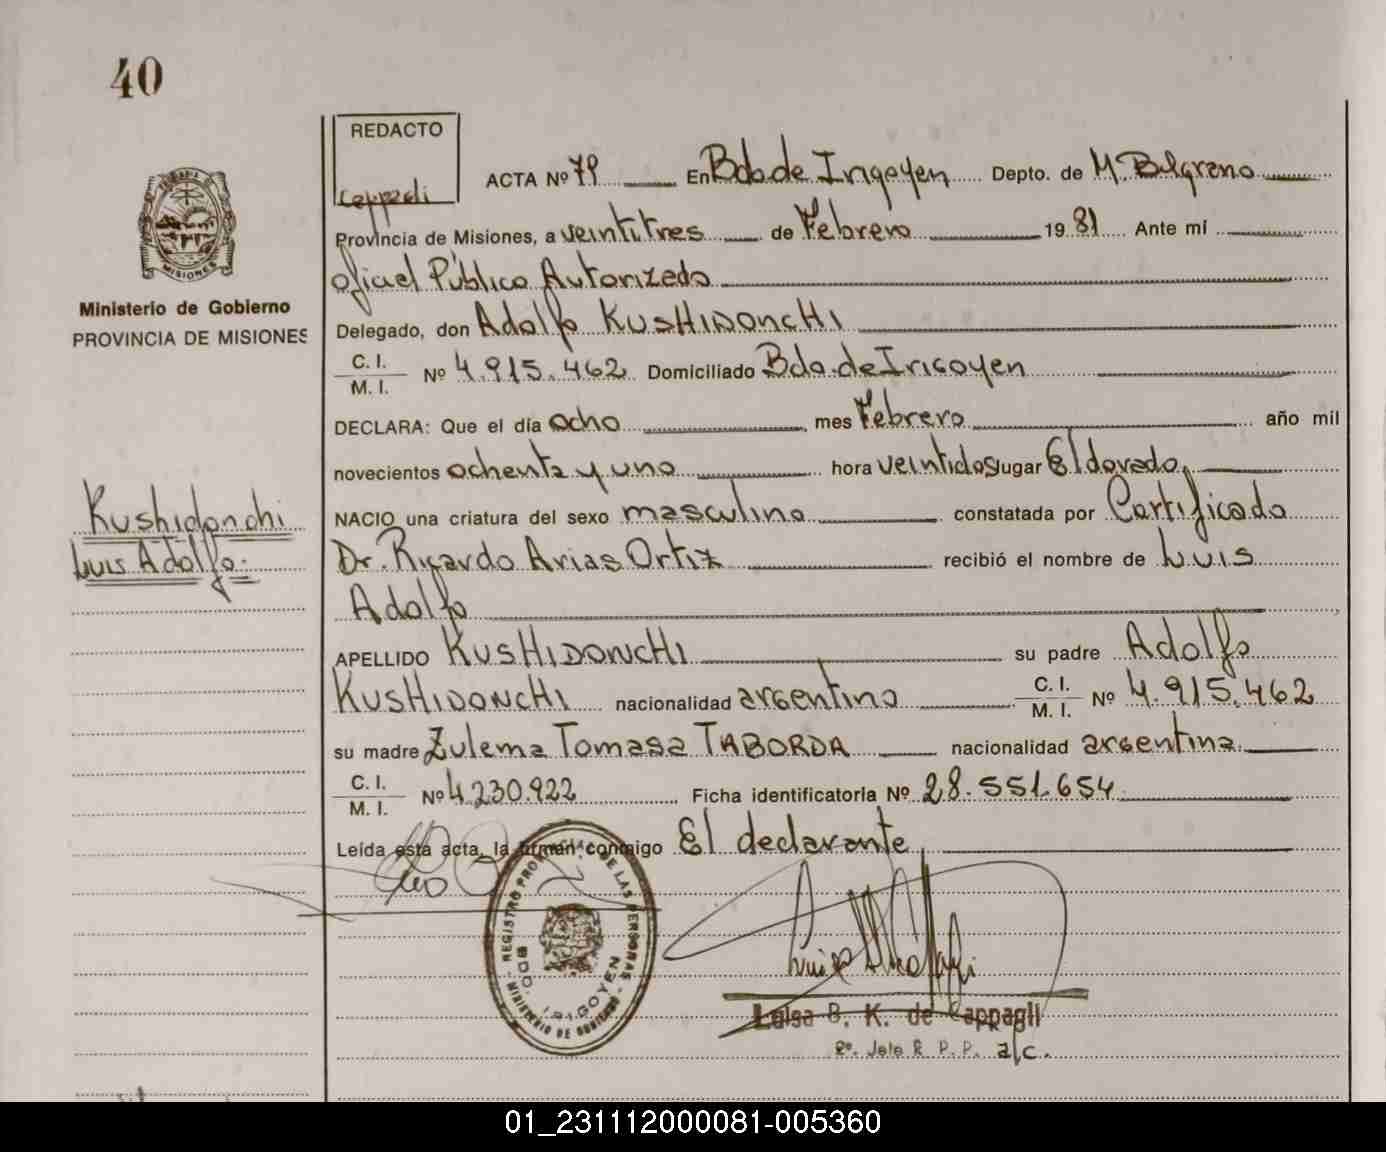 40
REDACTO
Cappagli
ACTA Nº 79 En Bdo de Irigoyen Depto. de M. Belgrano
Provincia de Misiones, a veintitres de Febrero 1981 Ante mí
oficial Público Autorizado
Delegado, don Adolfo KUSHIDONCHI
C. I.
M. I.
Nº 4.915.462 Domiciliado Bdo. de Irigoyen
DECLARA: Que el día ocho mes Febrero año mil
novecientos ochenta y uno hora veintidos lugar Eldorado,
NACIO una criatura del sexo masculino constatada por Certificado
Dr. Ricardo Arias Ortiz recibió el nombre de Luis
Adolfo
APELLIDO KUSHIDONCHI su padre Adolfo
KUSHIDONCHI nacionalidad argentino C. I. M. I. Nº 4.915.462
su madre Zulema Tomasa TABORDA nacionalidad argentina
C. I.
M. I.
Nº 4.230.922 Ficha identificatoria Nº 28.551.654
Leída esta acta, la firman conmigo El declarante,
MISIONES
Ministerio de Gobierno
PROVINCIA DE MISIONES
Kushidonchi
Luis Adolfo.
REGISTRO PROVINCIAL DE LAS PERSONAS
BDO. IRIGOYEN
MINISTERIO DE GOBIERNO
Luisa B. K. de Cappagli
R. P. P. a/c.
01_231112000081-005360